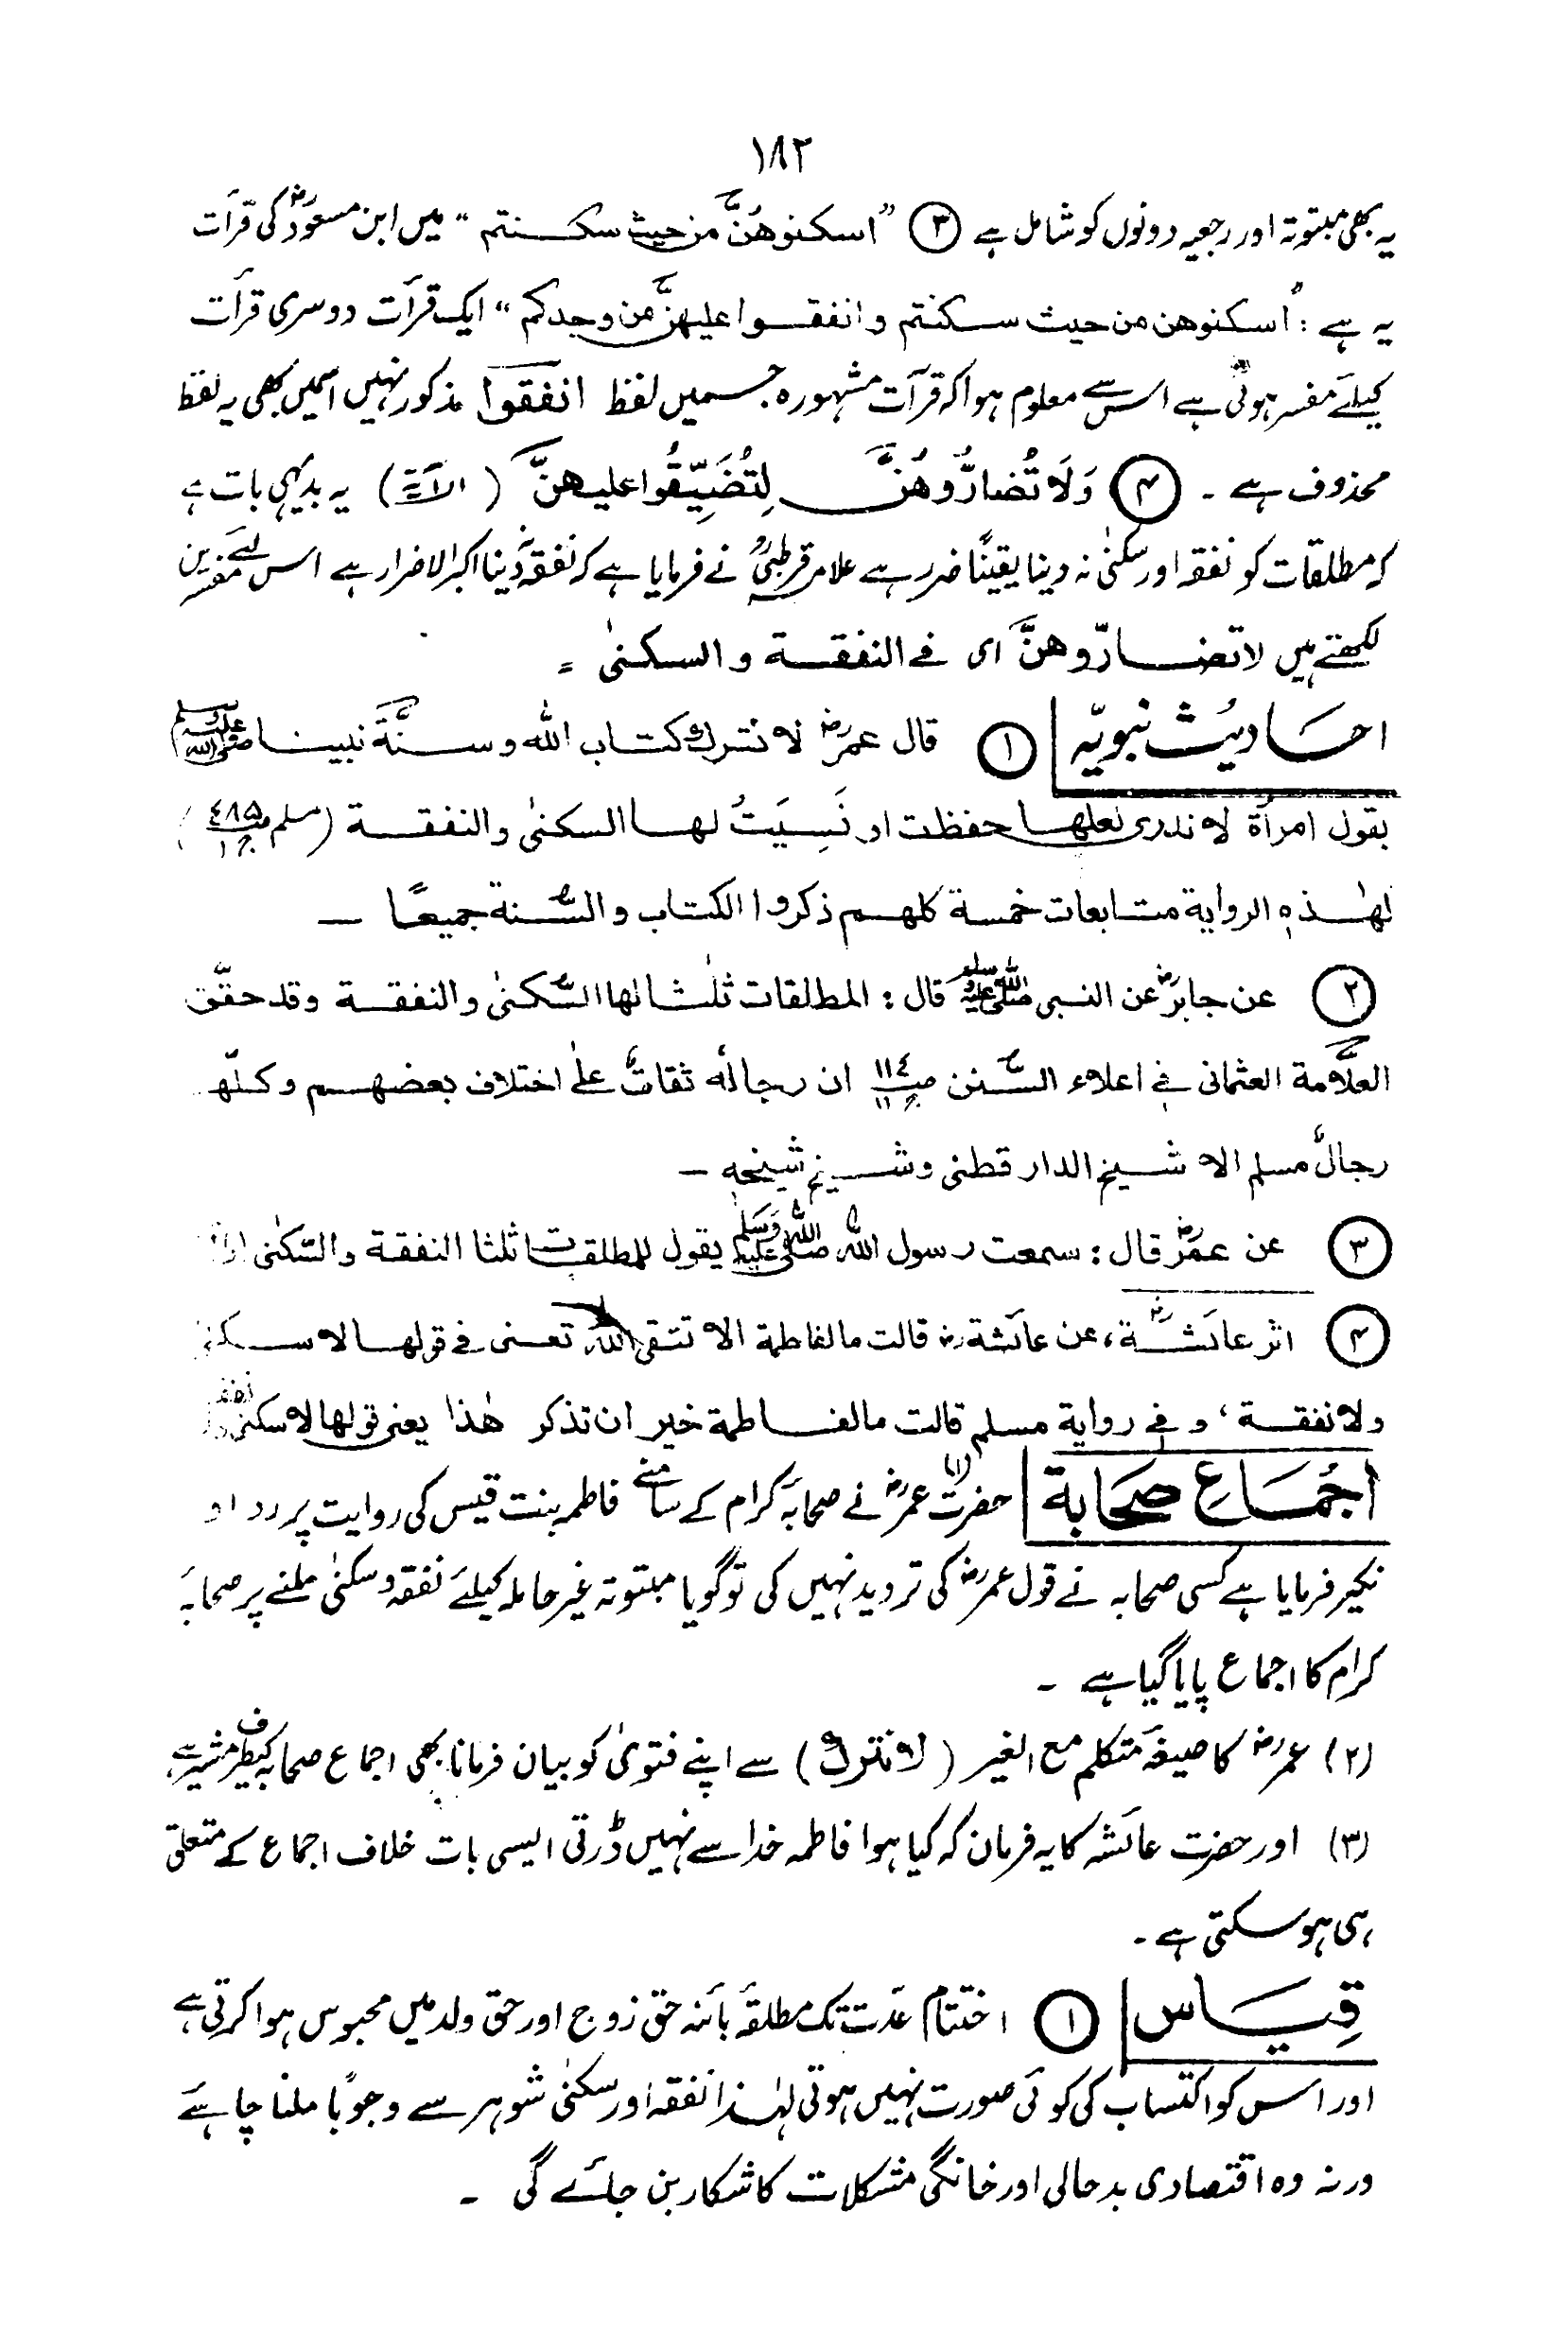 ۱۸۲
یہ بھی مبتوتہ اور رجعیہ دونوں کو شامل ہے ③ "اسکنوھُنَّ من حیث سکنتم" میں ابن مسعودؓ کی قرآت
یہ ہے : "اسکنوھن من حیث سکنتم وانفقوا علیھنَّ من وجدکم" ایک قرآت دوسری قرآت
کیلئے مفسر ہوتی ہے اس سے معلوم ہوا کہ قرآت مشہورہ جسمیں لفظ انفقوا مذکور نہیں اسمیں بھی یہ لفظ
محذوف ہے ۔ ④ وَلَا تُضارُّوھُنَّ لِتُضَیِّقُوا علیھنَّ (الآیۃ) یہ بدیہی بات ہے
کہ مطلقات کو نفقہ اور سکنیٰ نہ دینا یقینًا ضرر ہے علامہ قرطبیؒ نے فرمایا ہے کہ نفقہ نہ دینا اکبر الاضرار ہے اس لئے مفسرین
لکھتے ہیں لا تضارّوھنَّ ای فی النفقۃ والسکنیٰ =
احادیث نبویّہ ① قال عمرؓ لا نترك کتاب اللہ وسنّۃ نبینا ﷺ
بقول امرأۃ لا ندری لعلھا حفظت او نَسِیَتْ لھا السکنیٰ والنفقۃ (مسلم ص۴۸۵ ج۱)
لھٰذہ الروایۃ متابعات خمسۃ کلھم ذکروا الکتاب والسُّنۃ جمیعًا ـ
② عن جابرؓ عن النبی ﷺ قال : المطلقات ثلٰثا لھا السُّکنیٰ والنفقۃ وقد حقّق
العلّامۃ العثمانی فی اعلاء السُّنن ص۱۱٤ ج۱۱ ان رجالُہ ثقاتٌ علیٰ اختلاف بعضھم وکلّھ
رجالُ مسلم الا شیخ الدار قطنی وشیخ شیخہ ـ
③ عن عمرؓ قال : سمعت رسول اللہ ﷺ یقول للمطلقات ثلثا النفقۃ والسّکنیٰ
④ اثر عائشۃؓ، عن عائشۃؓ قالت ما لفاطمۃ الا تتقی اللہ تعنی فی قولھا لا سکنیٰ
ولا نفقۃ، وفی روایۃ مسلم قالت ما لفاطمۃ خیر ان تذکر ھٰذا یعنی قولھا لا سکنیٰ
اجماعِ صحابۃ (۱) حضرت عمرؓ نے صحابۂ کرام کے سامنے فاطمہ بنت قیس کی روایت پر رد او
نکیر فرمایا ہے کسی صحابہ نے قول عمرؓ کی تردید نہیں کی تو گویا مبتوتہ غیر حاملہ کیلئے نفقہ وسکنیٰ ملنے پر صحابۂ
کرام کا اجماع پایا گیا ہے ۔
(۲) عمرؓ کا صیغۂ متکلم مع الغیر (لا نترك) سے اپنے فتویٰ کو بیان فرمانا بھی اجماع صحابہ کیطرف مشیر ہے
(۳) اور حضرت عائشہ کا یہ فرمان کہ کیا ہوا فاطمہ خدا سے نہیں ڈرتی ایسی بات خلاف اجماع کے متعلق
ہی ہو سکتی ہے ۔
قِیَاس ① اختتام عدّت تک مطلقہ بائنہ حق زوج اور حق ولد میں محبوس ہوا کرتی ہے
اور اس کو اکتساب کی کوئی صورت نہیں ہوتی لہٰذا نفقہ اور سکنیٰ شوہر سے وجوبًا ملنا چاہئے
ورنہ وہ اقتصادی بدحالی اور خانگی مشکلات کا شکار بن جائے گی ۔